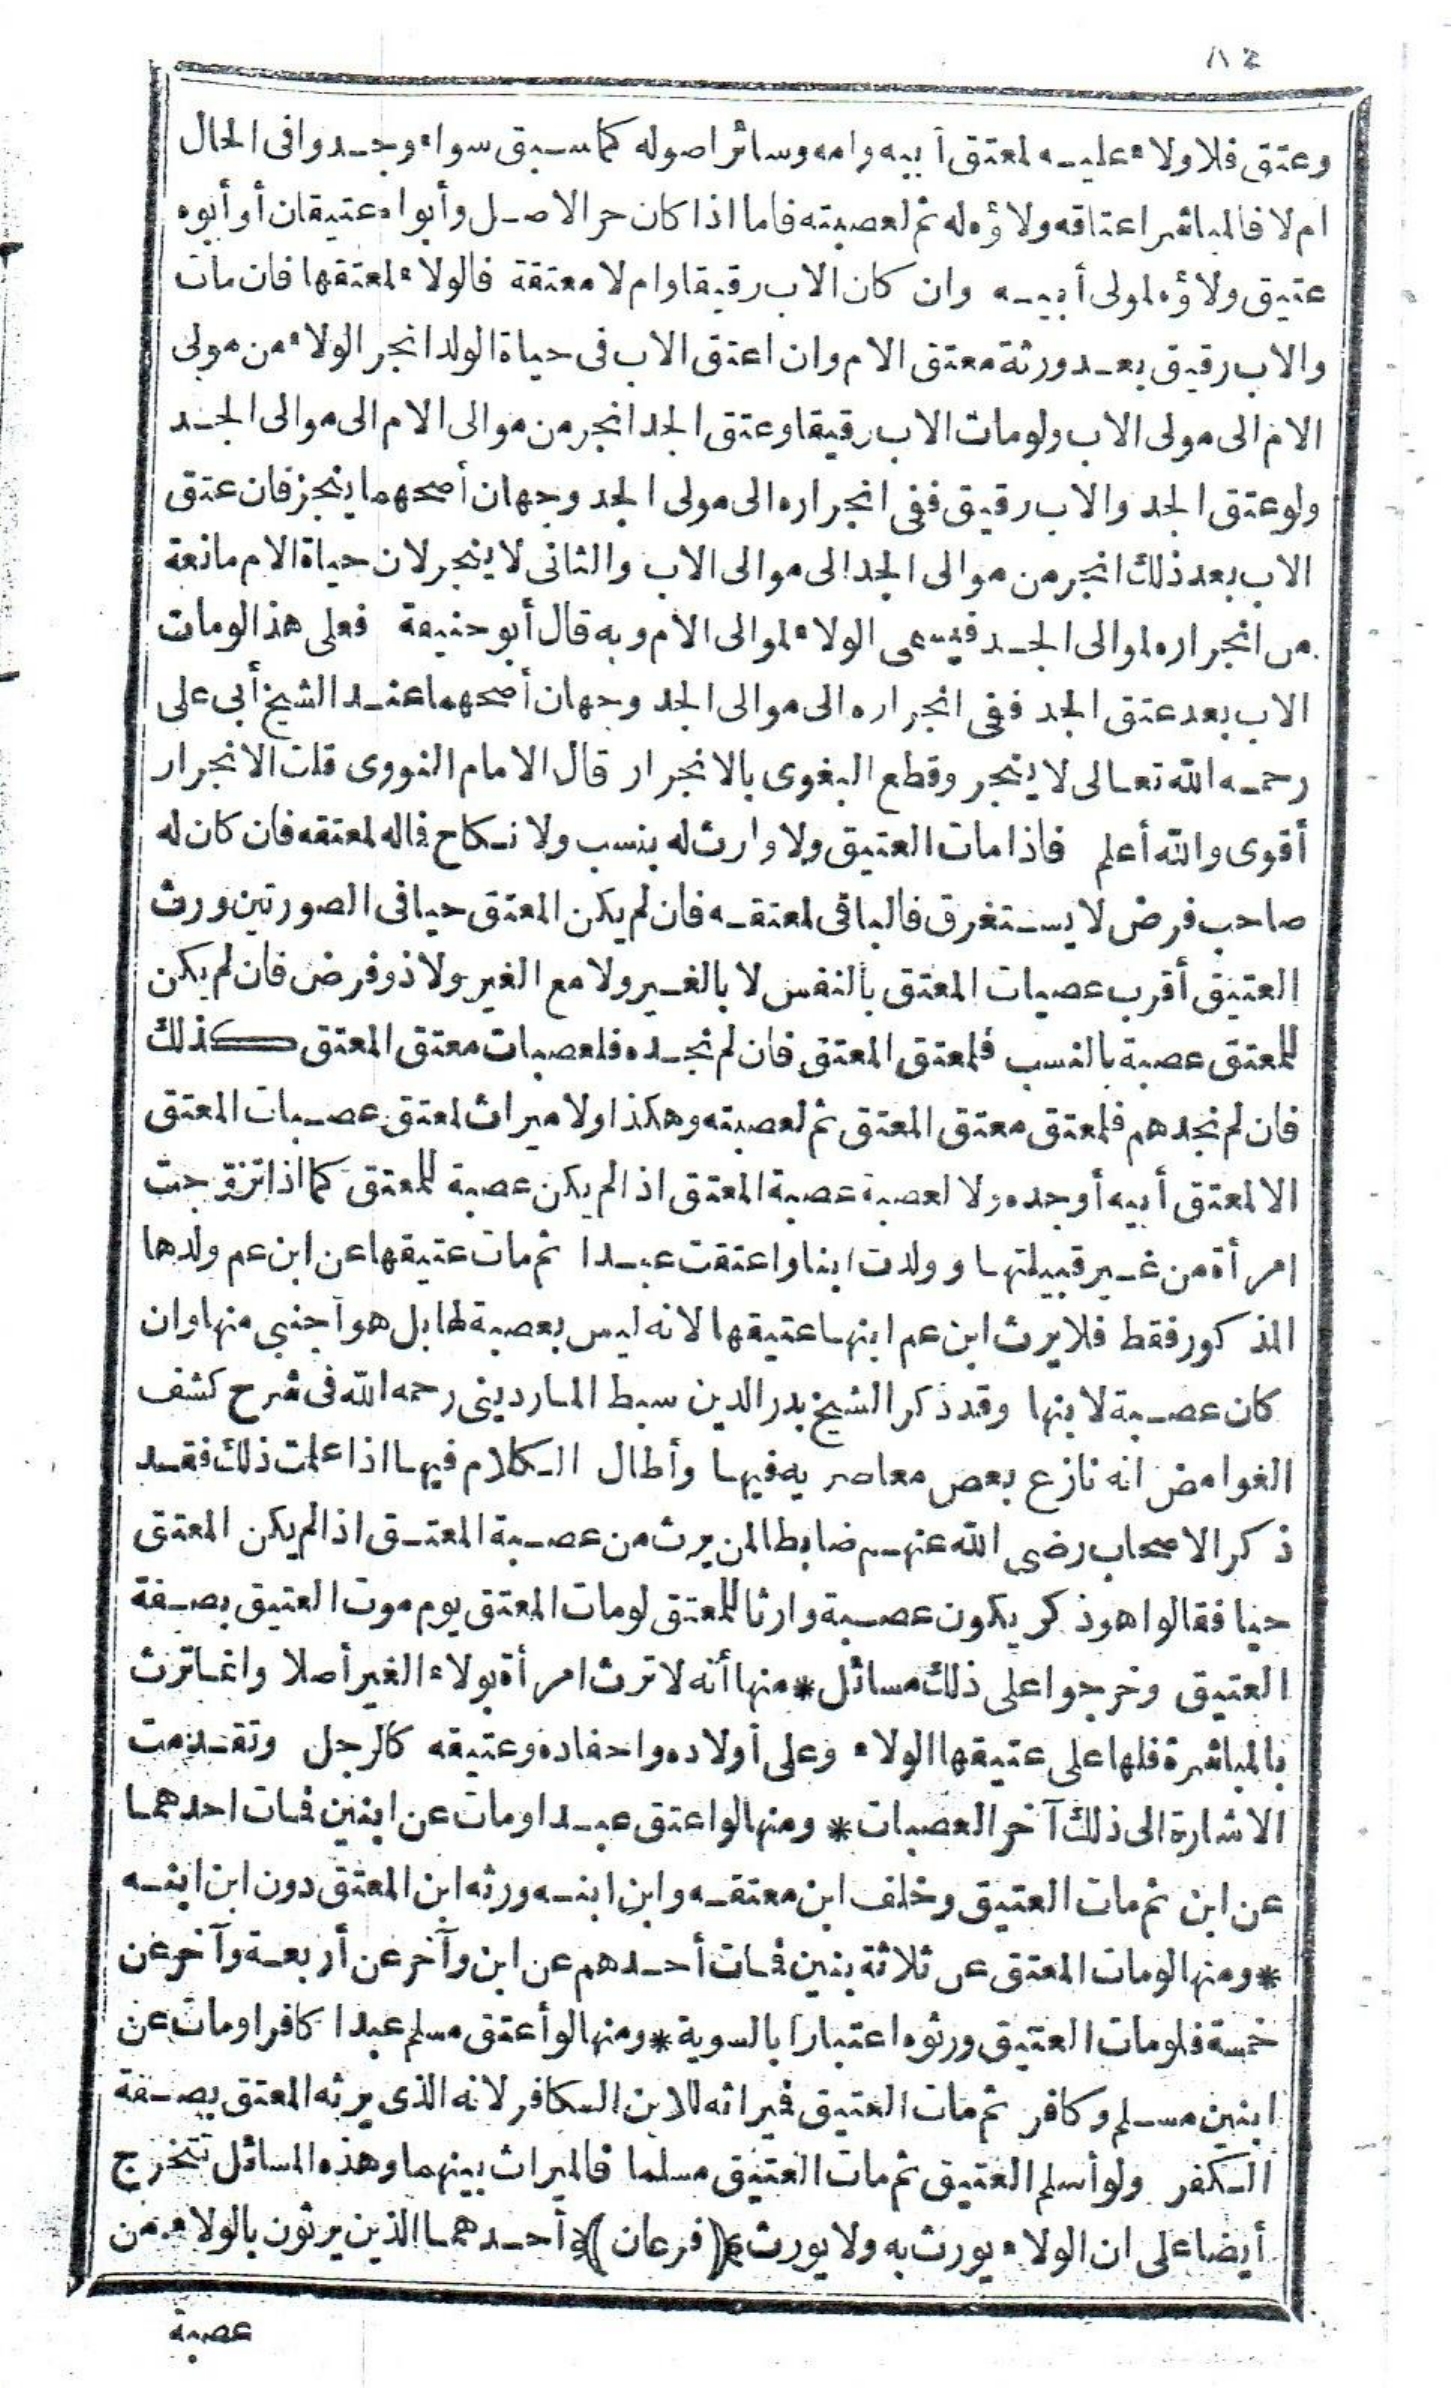 ٨٤
وعتق فلا ولاء عليه لمعتق أبيه وامه وسائر اصوله كما سبق سواء وجدوا فى الحال
ام لا فالمباشر اعتاقه ولاؤه له ثم لعصبته فاما اذا كان حر الاصل وأبواه عتيقان أو أبوه
عتيق ولاؤه لمولى أبيه وان كان الاب رقيقا وام لا معتقة فالولاء لمعتقها فان مات
والاب رقيق بعد ورثة معتق الام وان اعتق الاب فى حياة الولد انجر الولاء من مولى
الام الى مولى الاب ولو مات الاب رقيقا وعتق الجد انجر من موالى الام الى موالى الجد
ولو عتق الجد والاب رقيق ففى انجراره الى مولى الجد وجهان أصحهما ينجر فان عتق
الاب بعد ذلك انجر من موالى الجد الى موالى الاب والثانى لا ينجر لان حياة الام مانعة
من انجراره لموالى الجد فيسمى الولاء لموالى الام وبه قال أبو حنيفة فعلى هذا لو مات
الاب بعد عتق الجد ففى انجراره الى موالى الجد وجهان أصحهما عند الشيخ أبى على
رحمه الله تعالى لا ينجر وقطع البغوى بالانجرار قال الامام النووى قلت الانجرار
أقوى والله أعلم فاذا مات العتيق ولا وارث له بنسب ولا نكاح فاله لمعتقه فان كان له
صاحب فرض لا يستغرق فالباقى لمعتقه فان لم يكن المعتق حيا فى الصورتين ورث
العتيق أقرب عصبات المعتق بالنفس لا بالغير ولا مع الغير ولا ذو فرض فان لم يكن
للمعتق عصبة بالنسب فلمعتق المعتق فان لم نجده فلعصبات معتق المعتق كذلك
فان لم نجدهم فلمعتق معتق المعتق ثم لعصبته وهكذا ولا ميراث لمعتق عصبات المعتق
الا لمعتق أبيه أو جده ولا لعصبة عصبة المعتق اذا لم يكن عصبة للمعتق كما اذا تزوجت
امرأة من غير قبيلتها وولدت ابنا واعتقت عبدا ثم مات عتيقها عن ابن عم ولدها
المذكور فقط فلا يرث ابن عم ابنها عتيقها لانه ليس بعصبة لها بل هو أجنبى منها وان
كان عصبة لابنها وقد ذكر الشيخ بدر الدين سبط الماردينى رحمه الله فى شرح كشف
الغوامض انه نازع بعض معاصريه فيها وأطال الكلام فيها اذا علمت ذلك فقد
ذكر الاصحاب رضى الله عنهم ضابطا لمن يرث من عصبة المعتق اذا لم يكن المعتق
حيا فقالوا هو ذكر يكون عصبة وارثا للمعتق لو مات المعتق يوم موت العتيق بصفة
العتيق وخرجوا على ذلك مسائل * منها أنه لا ترث امرأة بولاء الغير أصلا وانما ترث
بالمباشرة فلها على عتيقها الولاء وعلى أولاده واحفاده وعتيقه كالرجل وتقدمت
الاشارة الى ذلك آخر العصبات * ومنها لو اعتق عبدا ومات عن ابنين فمات احدهما
عن ابن ثم مات العتيق وخلف ابن معتقه وابن ابنه ورثه ابن المعتق دون ابن ابنه
* ومنها لو مات المعتق عن ثلاثة بنين فمات أحدهم عن ابن وآخر عن أربعة وآخر عن
خمسة فلو مات العتيق ورثوه اعتبارا بالسوية * ومنها لو أعتق مسلم عبدا كافرا ومات عن
ابنين مسلم وكافر ثم مات العتيق فيراثه للابن الكافر لانه الذى يرثه المعتق بصفة
الكفر ولو أسلم العتيق ثم مات العتيق مسلما فالميراث بينهما وهذه المسائل تتخرج
أيضا على ان الولاء يورث به ولا يورث (فرعان) أحدهما الذين يرثون بالولاء من
عصبة